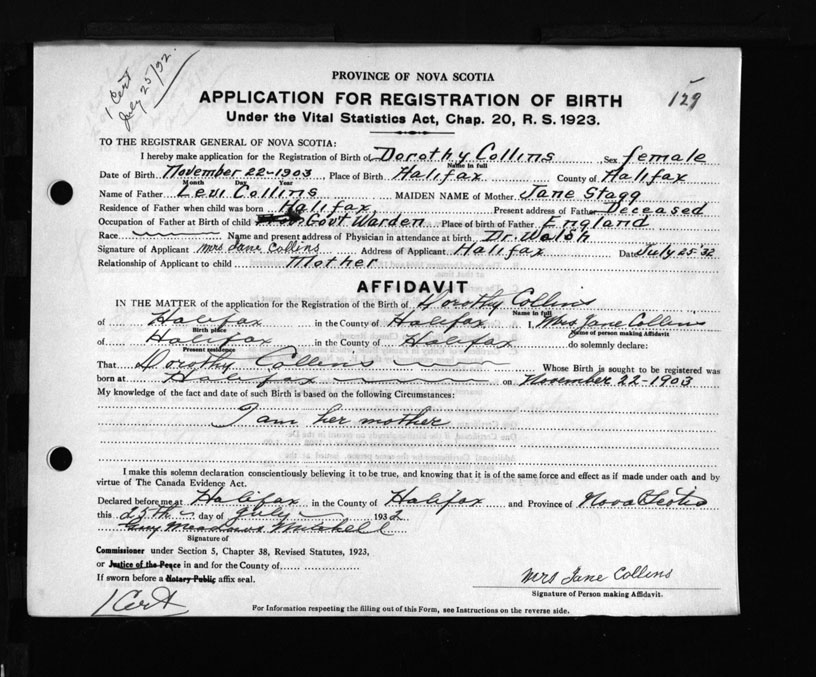 1 Cert
July 25/92.
129
PROVINCE OF NOVA SCOTIA
APPLICATION FOR REGISTRATION OF BIRTH
Under the Vital Statistics Act, Chap. 20, R. S. 1923.
TO THE REGISTRAR GENERAL OF NOVA SCOTIA:
I hereby make application for the Registration of Birth of Dorothy Collins Sex female
Name in full
Date of Birth November 22-1903 Place of Birth Halifax County of Halifax
Month Day Year
Name of Father Levi Collins MAIDEN NAME of Mother Jane Stagg
Residence of Father when child was born Halifax Present address of Father Deceased
Occupation of Father at Birth of child Govt Warden Place of birth of Father England
Race Name and present address of Physician in attendance at birth Dr Walsh
Signature of Applicant Mrs Jane Collins Address of Applicant Halifax Date July 25-32
Relationship of Applicant to child Mother
AFFIDAVIT
IN THE MATTER of the application for the Registration of the Birth of Dorothy Collins
Name in full
of Halifax in the County of Halifax I, Mrs Jane Collins
Birth place Name of person making Affidavit
of Halifax in the County of Halifax do solemnly declare:
Present residence
That Dorothy Collins Whose Birth is sought to be registered was
born at Halifax on November 22-1903
My knowledge of the fact and date of such Birth is based on the following Circumstances:
I am her mother
I make this solemn declaration conscientiously believing it to be true, and knowing that it is of the same force and effect as if made under oath and by
virtue of The Canada Evidence Act.
Declared before me at Halifax in the County of Halifax and Province of Nova Scotia
this 25th day of July 1932
Guy Mitchell
Signature of
Commissioner under Section 5, Chapter 38, Revised Statutes, 1923,
or Justice of the Peace in and for the County of
If sworn before a Notary Public affix seal.
Mrs Jane Collins
Signature of Person making Affidavit.
1 Cert
For Information respecting the filling out of this Form, see Instructions on the reverse side.